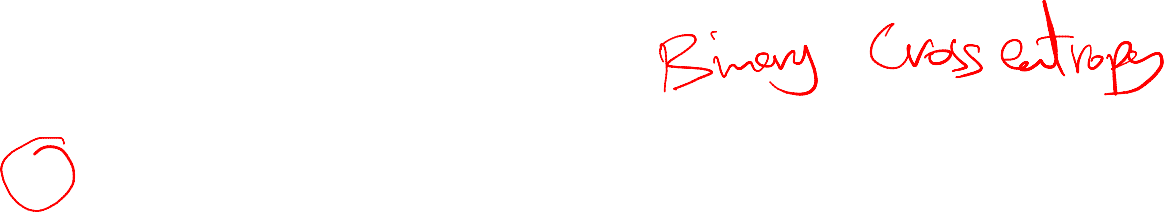 Binary Crossentropy